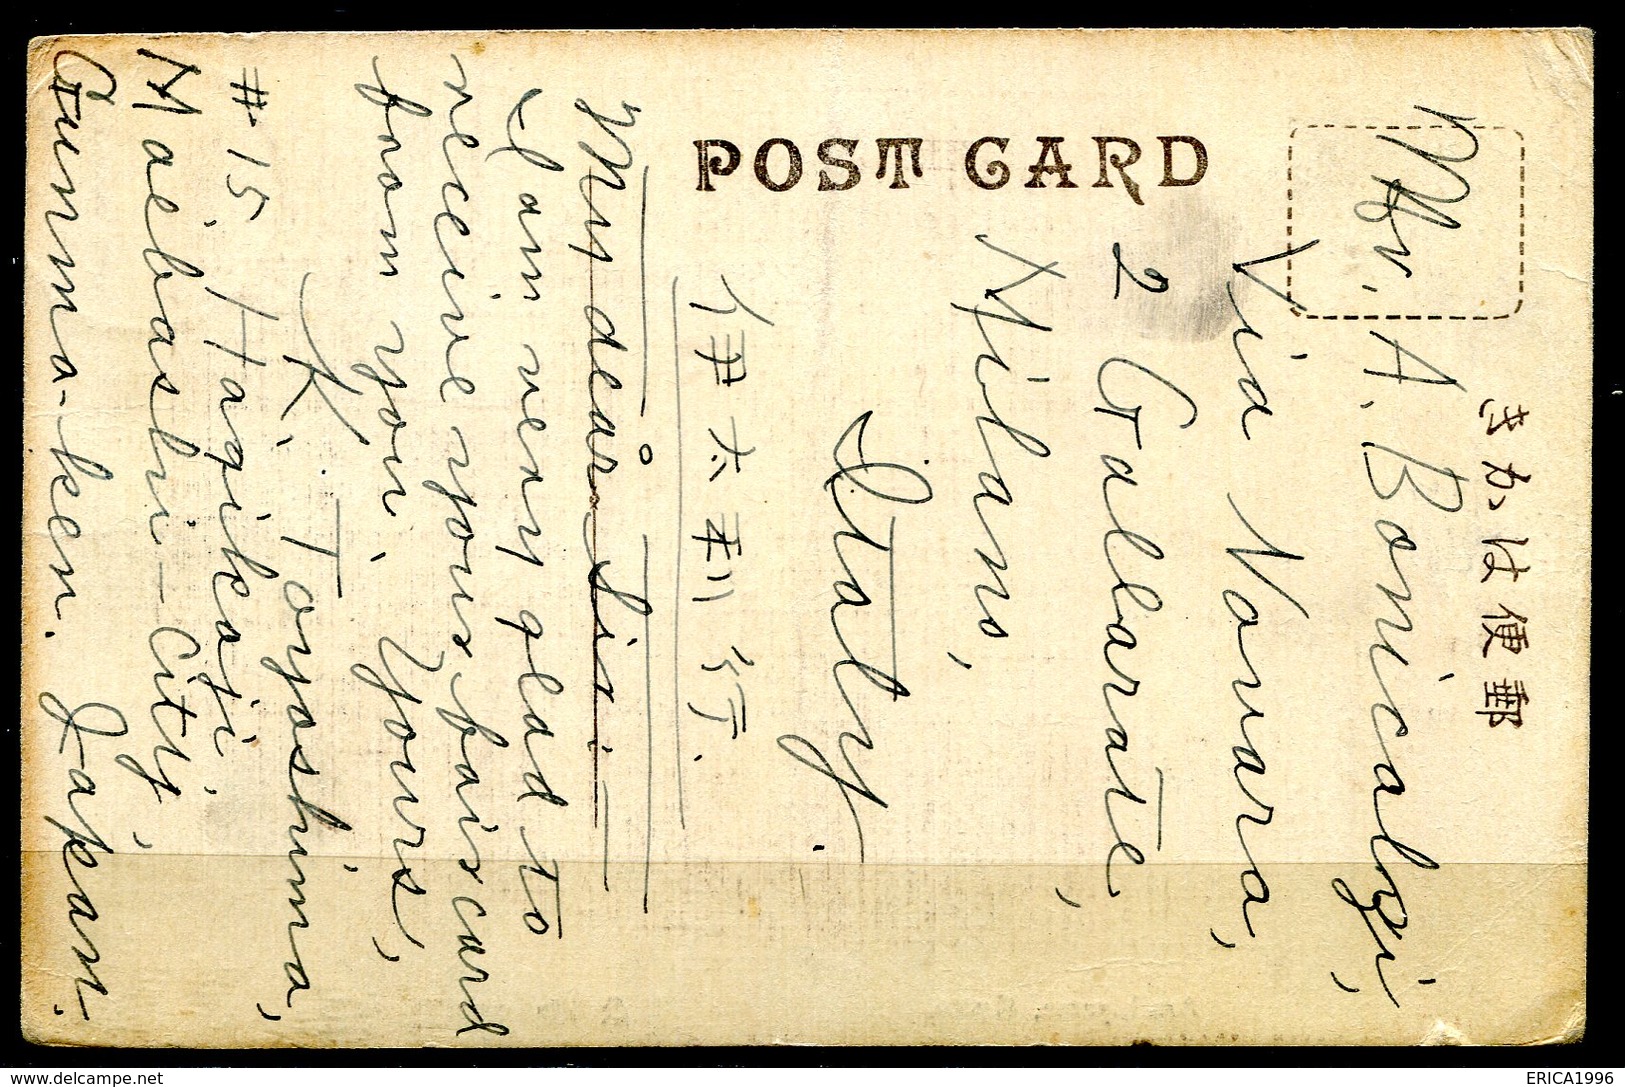 きかは便郵
POST CARD
Mr. A. Bonicalzi,
Via Novara,
2 Gallarate,
Milano,
Italy.
伊太利行.
My dear Sir:—
I am very glad to
receive your fair card
from you, Yours,
K. Toyoshima,
#15 Hagikoji,
Maebashi-city,
Gunma-ken. Japan.
ERICA1996